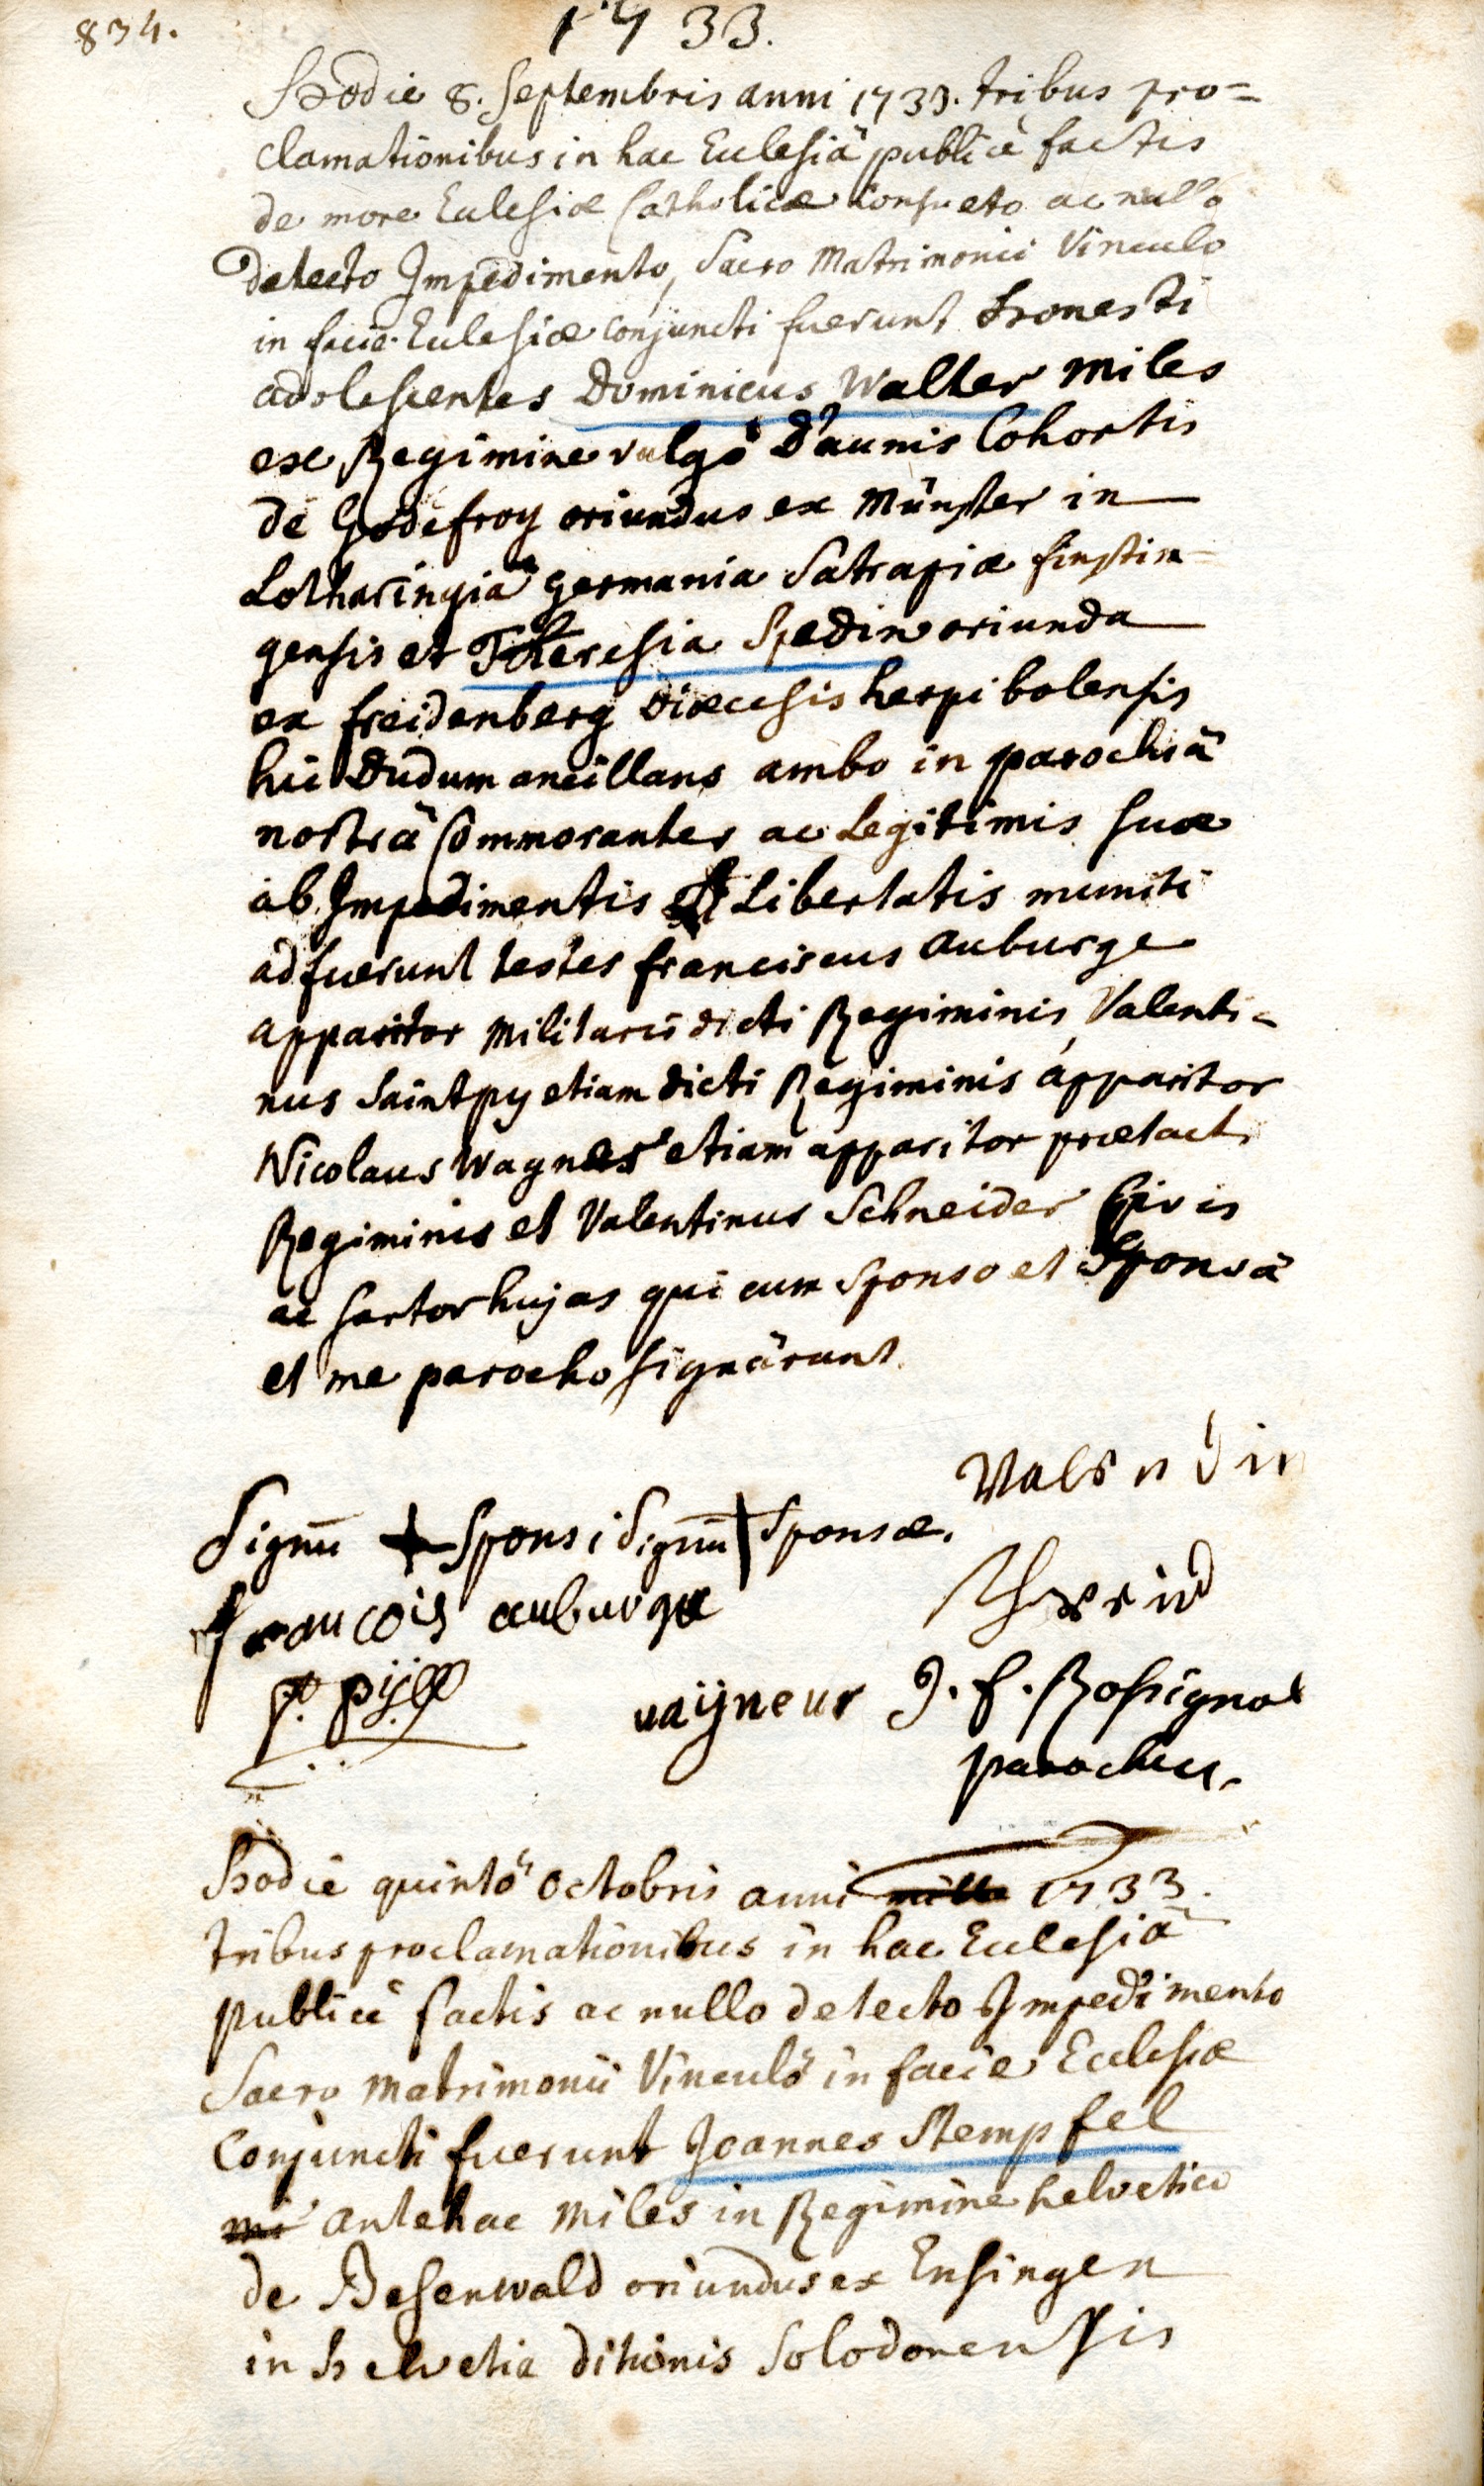 834.
1733.
Hodie 8. Septembris anni 1733. tribus pro=
clamationibus in hac Ecclesiâ publicè factis
de more Ecclesiæ Catholicæ consueto ac nullo
detecto Impedimento, Sacro Matrimonii Vinculo
in facie Ecclesiæ conjuncti fuerunt Honesti
adolescentes Dominicus Walter Miles
ex Regimine vulgò D'aunis Cohortis
de Godefroy oriundus ex Münster in
Lotharingiâ Germania Satrapiæ finstin=
gensis et Theresia Spedin oriunda
ex freidenberg Diœcesis herpibolensis
hic Dudum ancillans ambo in parochiâ
nostrâ Commorantes ac Legitimis suæ
ab Impedimentis Libertatis muniti
adfuerunt testes franciscus Auburge
apparitor Militaris dicti Regiminis, Valenti=
nus Saintpy etiam dicti Regiminis apparitor
Nicolaus Wagner etiam apparitor prætacti
Regiminis et Valentinus Schneider Civis
ac Sartor hujas qui cum Sponso et Sponsâ
et me parocho signârunt.
Valendin
Signū + Sponsi Signū | Sponsæ.
francois auburge
St. pij
vaijneur J. f. Rossignol
parochus.
Hodie quintâ Octobris anni mille 1733.
tribus proclamationibus in hac Ecclesiâ
publicè factis ac nullo detecto Impedimento
Sacro Matrimonii Vinculô in facie Ecclesiæ
Conjuncti fuerunt Joannes Stempfel
mi antehac Miles in Regimine helvetico
de Besenwald oriundus ex Ensingen
in Helvetia ditionis Solodorensis